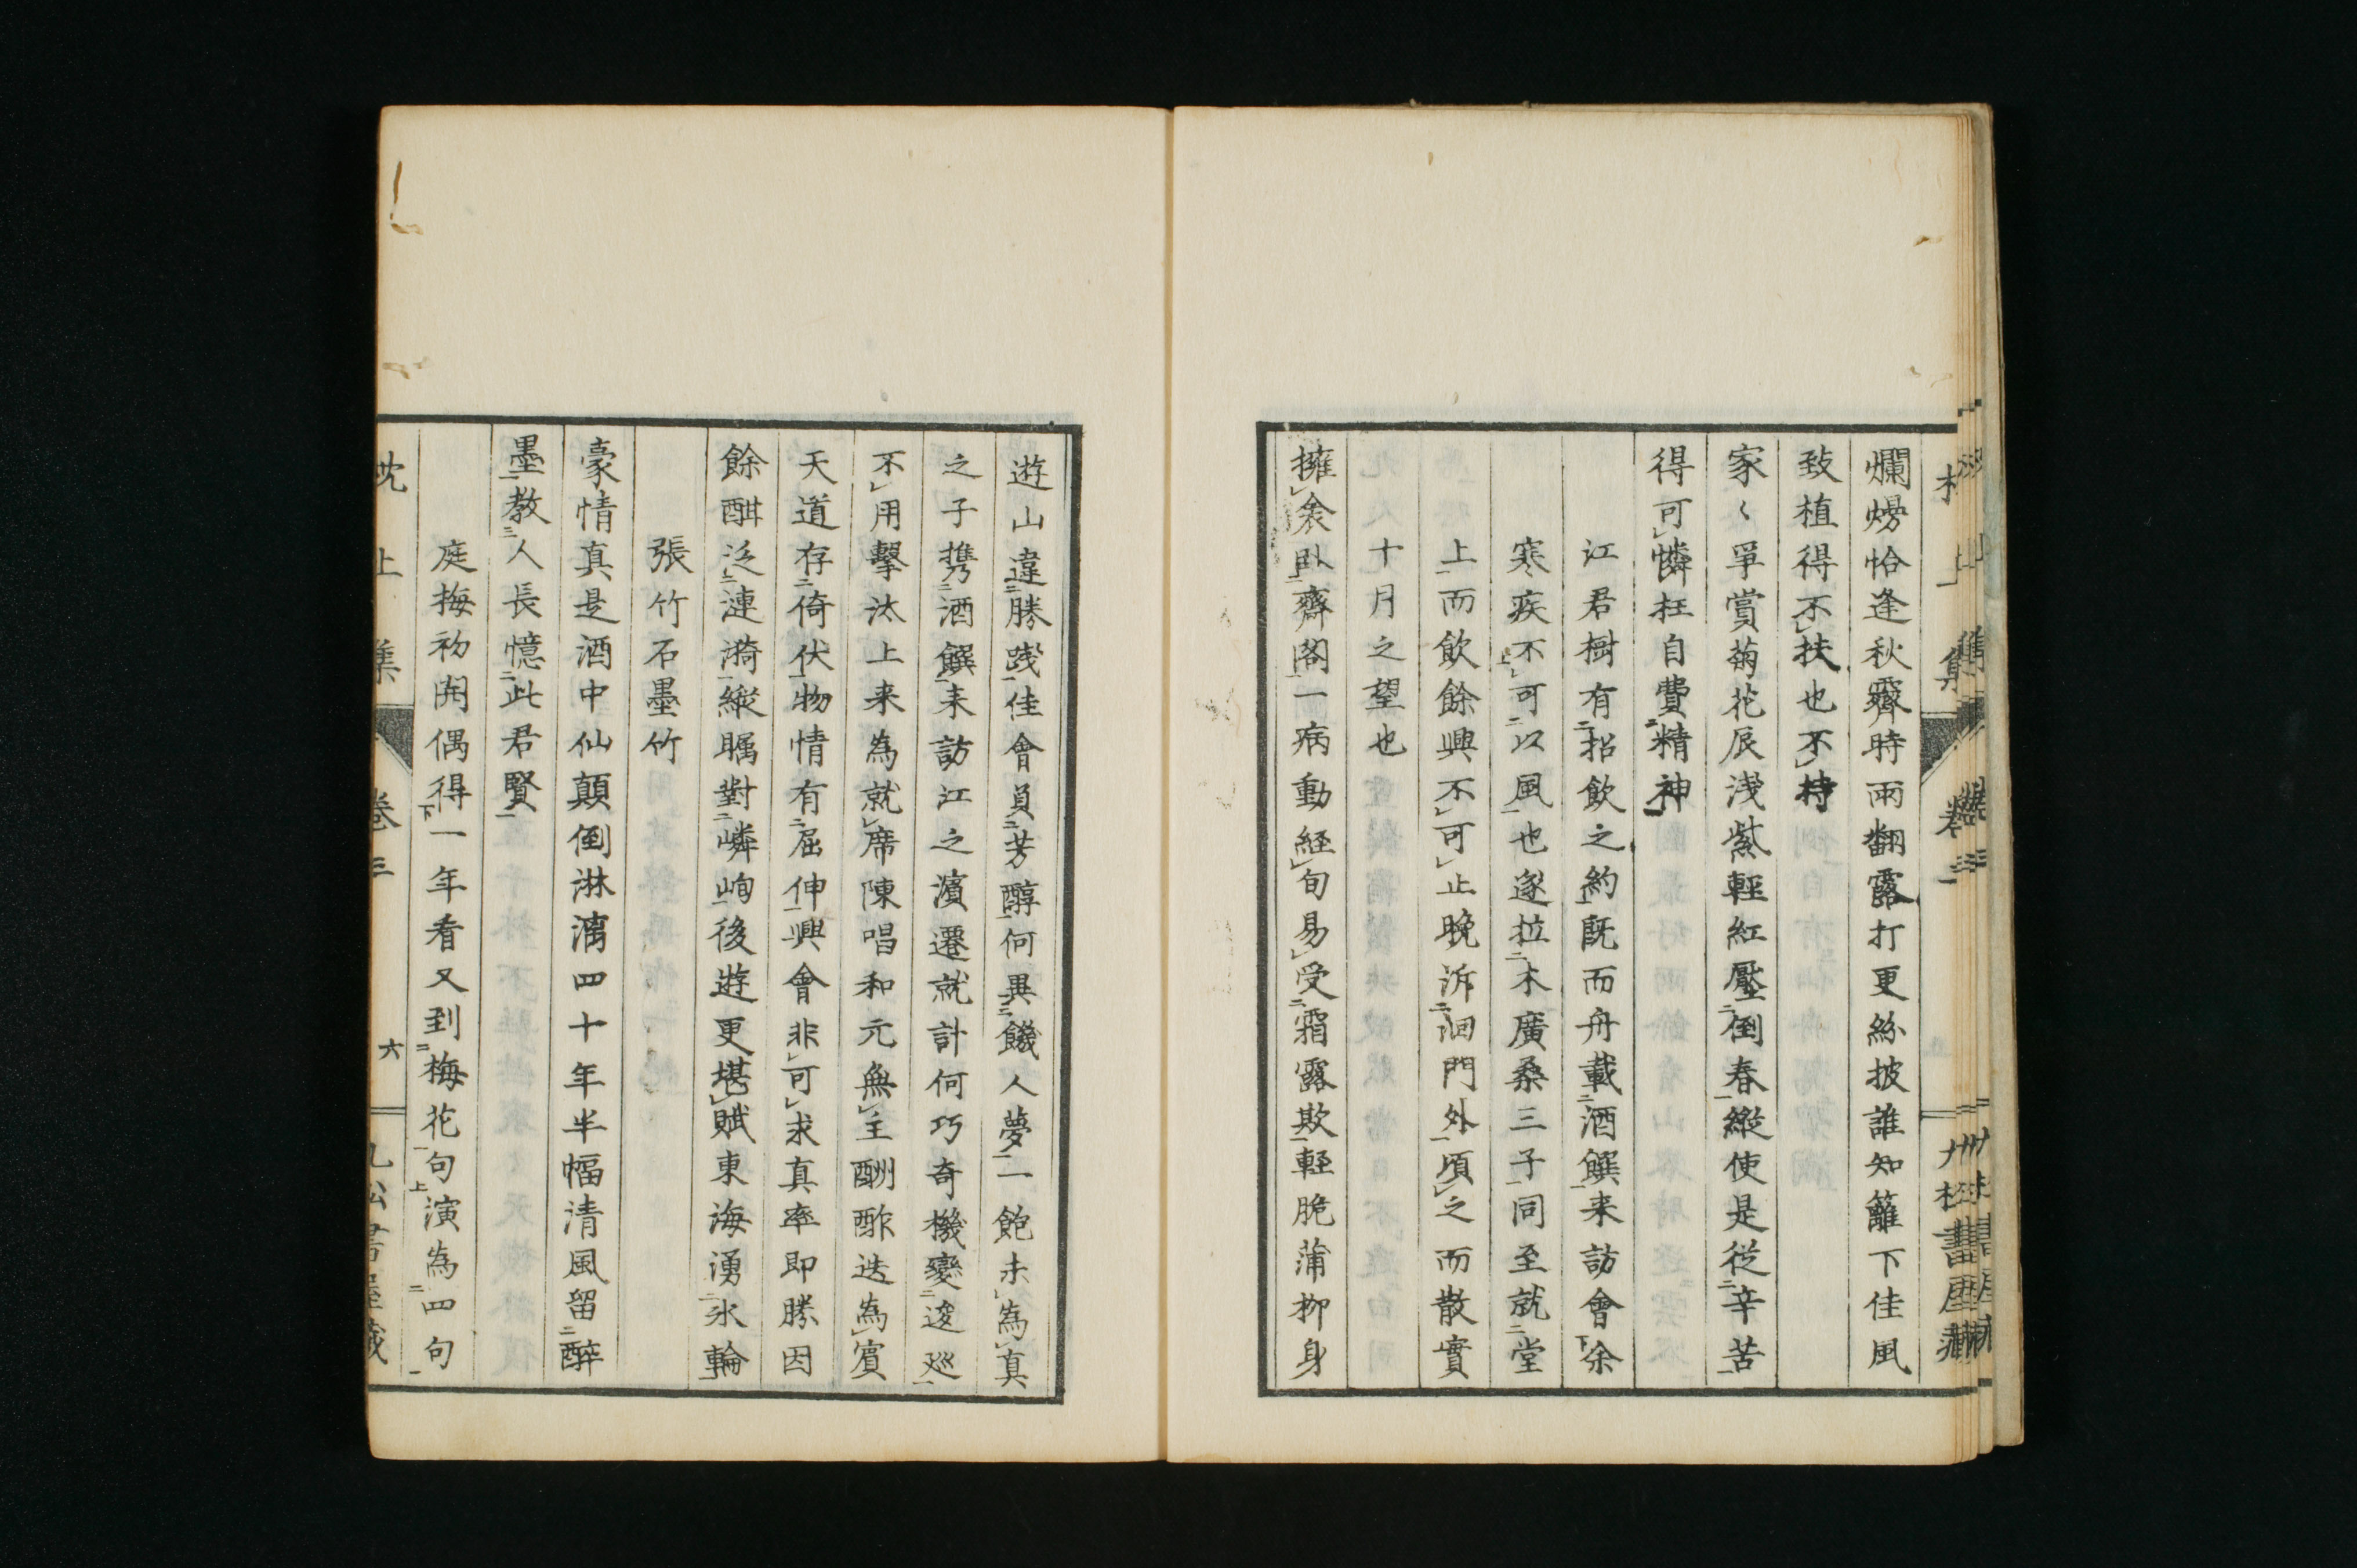 爛熳恰逢秋霽時雨翻露打更紛披誰知籬下佳風
致植得不扶也不持
家〻爭賞菊花辰淺紫輕紅壓倒春縱使是從辛苦
得可憐枉自費精神
江君樹有招飲之約既而舟載酒饌来訪會余
寒疾不可以風也遂拉木廣桑三子同至就堂
上而飲餘興不可止晚泝洄門外頃之而散實
十月之望也
擁衾臥齋閣一病動経旬易受霜露欺軽脆蒲柳身
遊山違勝踐佳會負芳醇何異饑人夢一飽未為真
之子携酒饌来訪江之濱遷就計何巧奇機變逡巡
不用擊汰上来為就席陳唱和元無主酬酢迭為賓
天道存倚伏物情有屈伸興會非可求真率即勝因
餘酣泛漣漪縱矚對嶙峋後遊更堪賦東海湧氷輪
張竹石墨竹
豪情真是酒中仙顛倒淋漓四十年半幅清風留醉
墨教人長憶此君賢
庭梅初開偶得一年看又到梅花句演為四句
枕上集 卷三 六 九松書屋藏